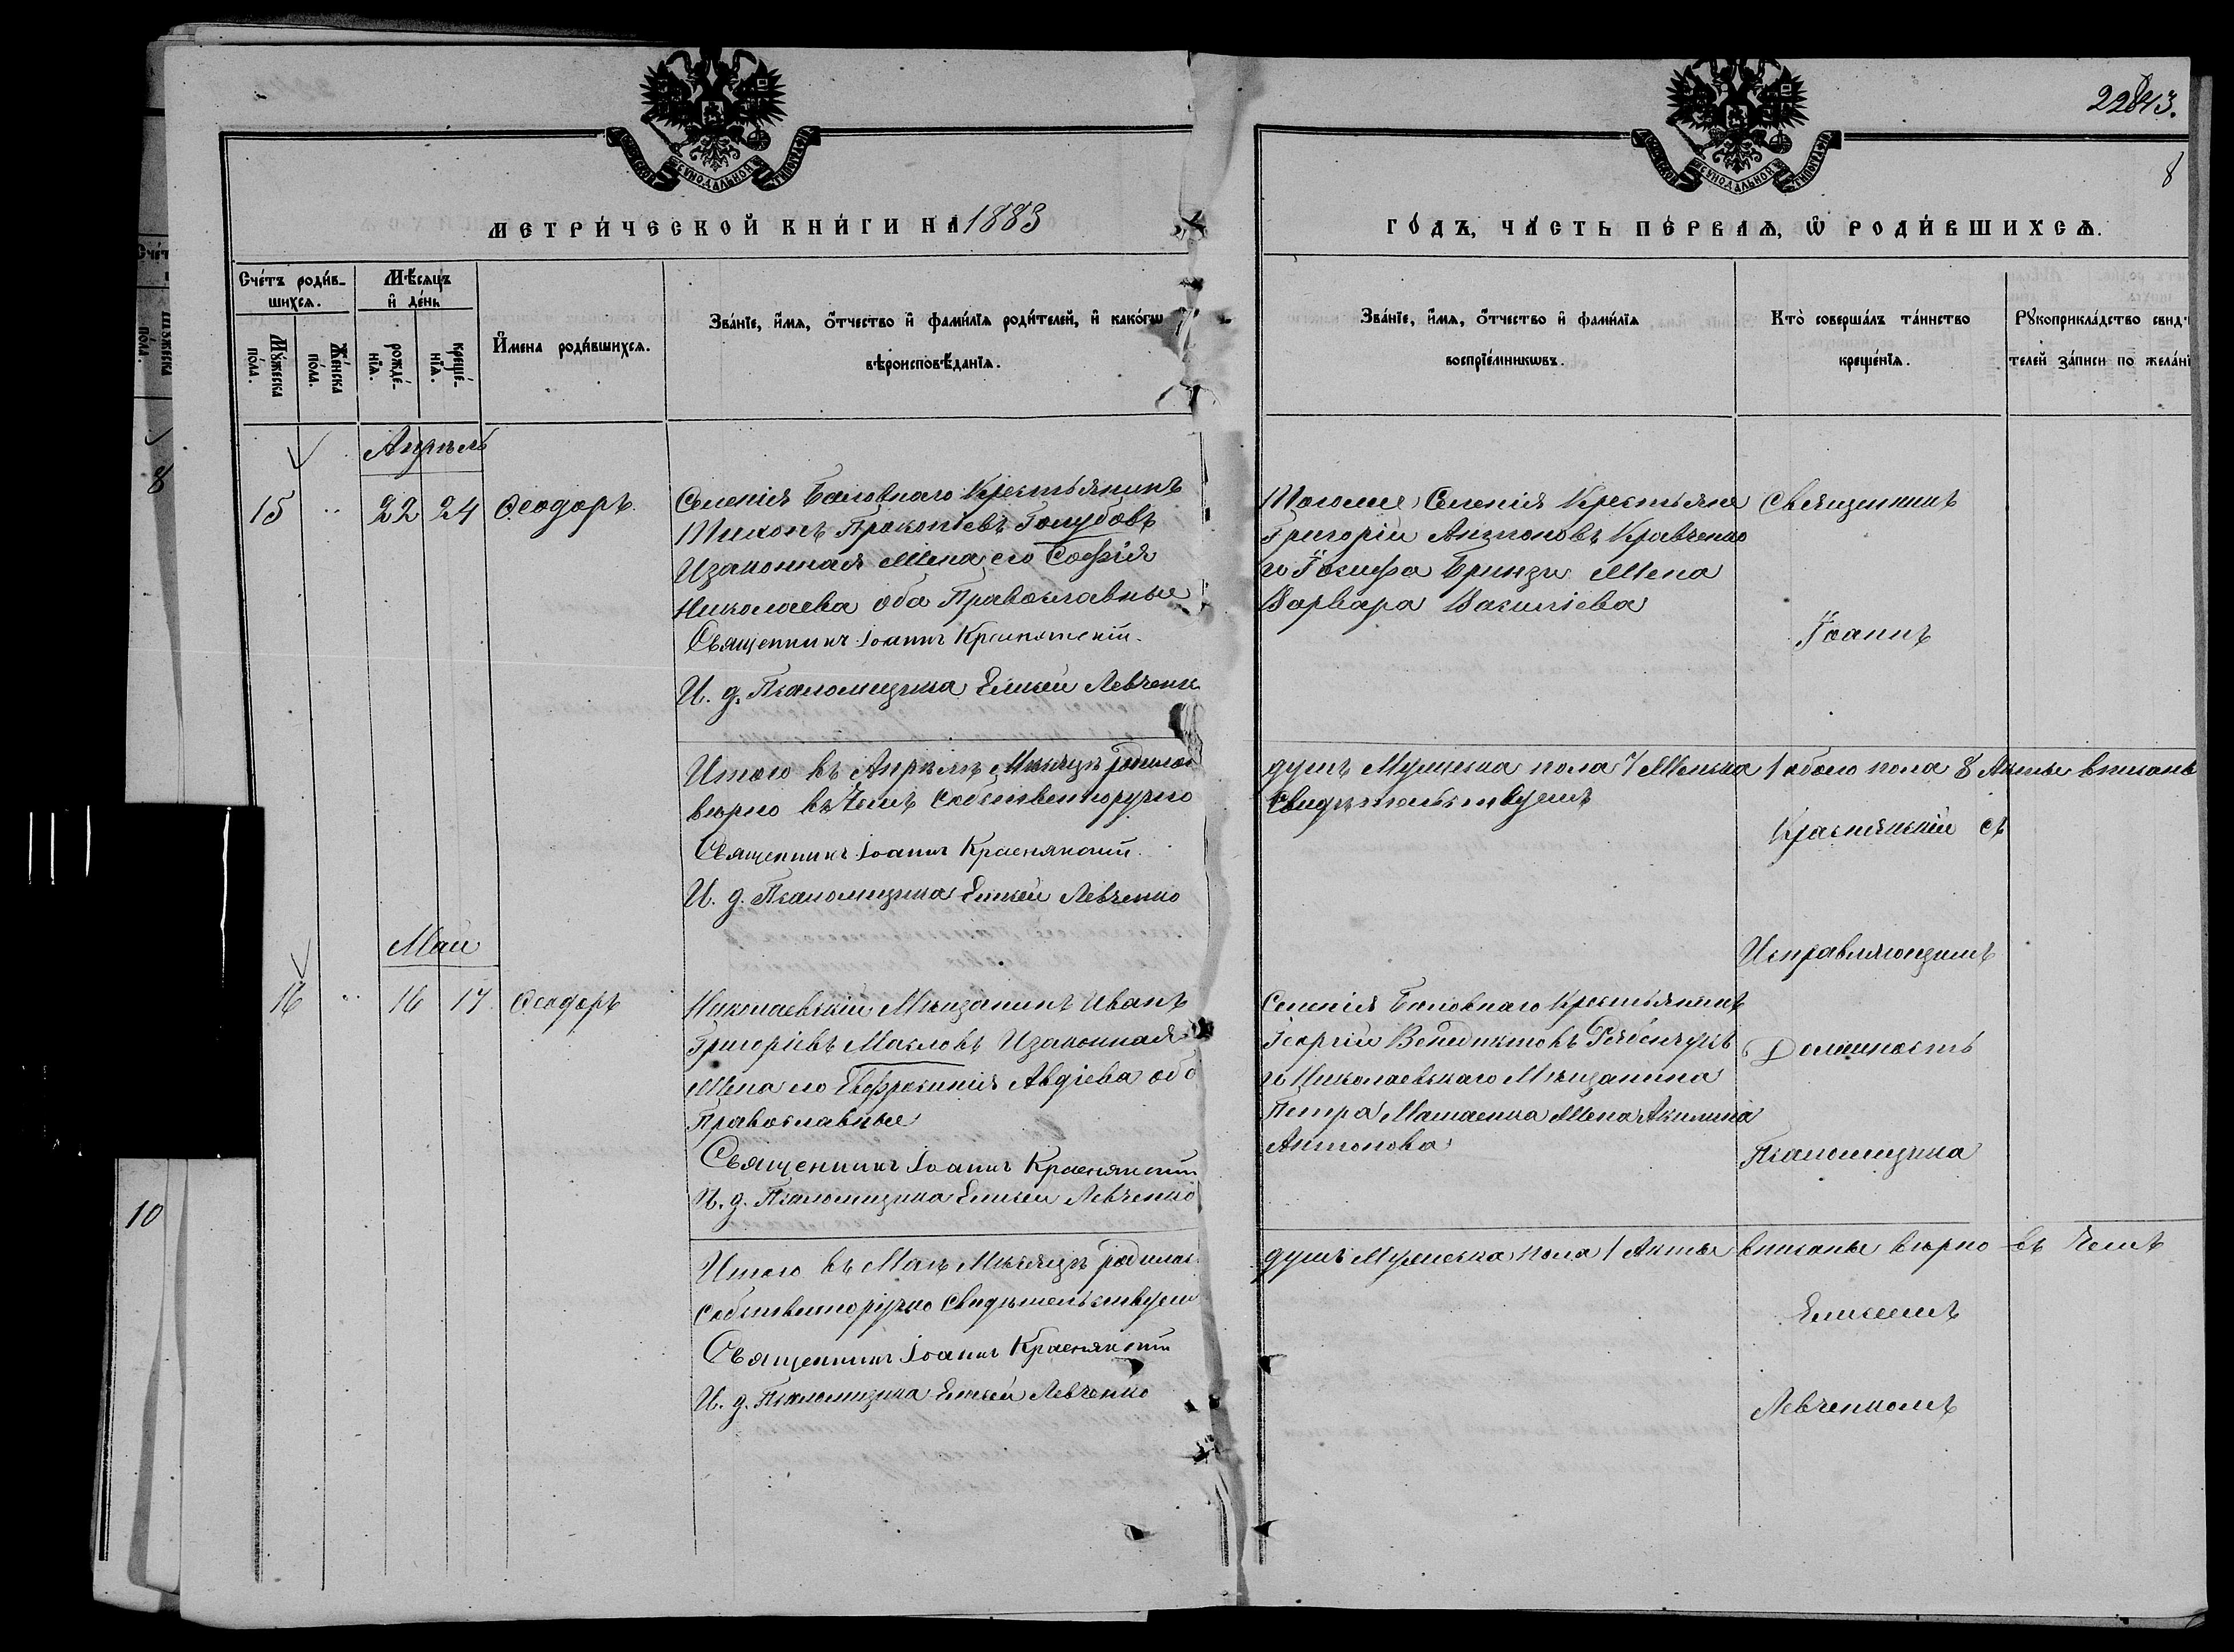 2284З.
8
МЕТРИ́ЧЕСКОЙ КНИ́ГИ НА 1883
ГО́ДЪ, ЧА́СТЬ ПЕ́РВАЯ, Ѡ РОДИ́ВШИХСЯ.
Сче́тъ роди́в-
шихся.
Мѣ́сяцъ
и де́нь
Му́жеска
по́ла.
Же́нска
по́ла.
рожде́-
нїѧ.
креще́-
нїѧ.
И́мена роди́вшихся.
Зва́нїе, и́мѧ, ѻ́тчество и фами́лїѧ роди́телей, и како́гѡ
вѣроисповѣ́данїѧ.
Зва́нїе, и́мѧ, ѻ́тчество и фами́лїѧ
воспрїе́мникѡвъ.
Кто̀ соверша́лъ та́инство
креще́нїѧ.
Рꙋкоприкла́дство свид
телей за́писи по жела́ні
Апрѣль
15
22 24
Ѳеодоръ
Селенія Баловнаго Крестьянинъ
Тихонъ Прокопіевъ Голубовъ
Изаконная Жена его Софія
Николаева оба Православные
Священникъ Іоаннъ Краснянскій.
И. д. Псаломщика Елисей Левченк
Тогоже Селенія Крестьяне
Григорій Антоновъ Кравченко
и Іосифа Бринзы Жена
Варвара Василіева
Священникъ
Іоаннъ
Итого въ Апрѣлѣ Мѣсяцѣ родилос
вѣрно въ Чемъ Собственноручно
Священникъ Іоаннъ Краснянскій.
И. д. Псаломщика Елисей Левченко
душъ Мужеска пола 7 Женска 1 обоего пола 8 Акты вписанъ
Свидѣтельствуемъ
Краснянскій съ
Май
Исправляющимъ
16
16 17
Ѳеодоръ
Николаевскій Мѣщанинъ Иванъ
Григоріевъ Масловъ Изаконная
Жена его Евфросинія Авдіева обо
Православные
Священникъ Іоаннъ Краснянскій
И. д. Псаломщика Елисей Левченко
Селенія Баловнаго Крестьянинъ
Георгій Венедиктовъ
и Николаевскаго Мѣщанина
Петра Жена Акилина
Антонова
Должность
Псаломщика
Итого въ Маѣ Мѣсяцѣ родилос
Собственноручно Свидѣтельствуем
Священникъ Іоаннъ Краснянскій
И. д. Псаломщика Елисей Левченко
душъ Мужеска пола 1 Акты вписаны вѣрно въ Чемъ
Елисеемъ
Левченкомъ
8
10